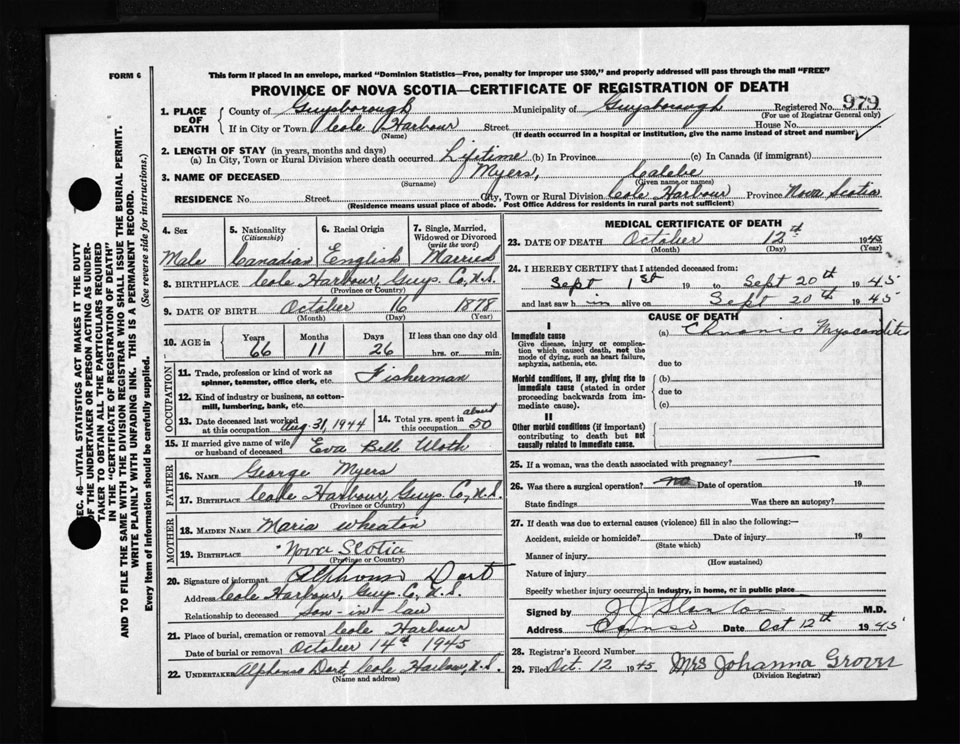 FORM 6
This form if placed in an envelope, marked "Dominion Statistics—Free, penalty for improper use $300," and properly addressed will pass through the mail "FREE"
PROVINCE OF NOVA SCOTIA—CERTIFICATE OF REGISTRATION OF DEATH
1. PLACE OF DEATH
County of Guysborough Municipality of Guysborough Registered No. 979
(For use of Registrar General only)
If in City or Town Cole Harbour Street House No.
(Name) (If death occurred in a hospital or institution, give the name instead of street and number)
2. LENGTH OF STAY (in years, months and days)
(a) In City, Town or Rural Division where death occurred Lifetime (b) In Province (c) In Canada (if immigrant)
3. NAME OF DECEASED Myers, Calebe
(Surname) (Given name or names)
RESIDENCE No. Street City, Town or Rural Division Cole Harbour Province Nova Scotia
(Residence means usual place of abode. Post Office Address for residents in rural parts not sufficient)
4. Sex 5. Nationality (Citizenship) 6. Racial Origin 7. Single, Married, Widowed or Divorced (write the word)
Male Canadian English Married
8. BIRTHPLACE Cole Harbour, Guys. Co. N.S.
(Province or Country)
9. DATE OF BIRTH October 16 1878
(Month) (Day) (Year)
10. AGE in Years Months Days If less than one day old
66 11 26 hrs. or min.
OCCUPATION
11. Trade, profession or kind of work as spinner, teamster, office clerk, etc. Fisherman
12. Kind of industry or business, as cotton-mill, lumbering, bank, etc.
13. Date deceased last worked at this occupation Aug. 31, 1944 14. Total yrs. spent in this occupation about 50
15. If married give name of wife or husband of deceased Eva Bell
FATHER
16. NAME George Myers
17. BIRTHPLACE Cole Harbour, Guys. Co, N.S.
(Province or Country)
MOTHER
18. MAIDEN NAME Maria Wheaton
19. BIRTHPLACE Nova Scotia
(Province or Country)
20. Signature of informant Alphonso Dort
Address Cole Harbour, Guys. Co, N.S.
Relationship to deceased Son-in-law
21. Place of burial, cremation or removal Cole Harbour
Date of burial or removal October 14th 1945
22. UNDERTAKER Alphonso Dort, Cole Harbour, N.S.
(Name and address)
MEDICAL CERTIFICATE OF DEATH
23. DATE OF DEATH October 12th 1945
(Month) (Day) (Year)
24. I HEREBY CERTIFY that I attended deceased from:
Sept 1st 19 to Sept 20th 1945
and last saw h im alive on Sept 20th 1945
CAUSE OF DEATH
I
Immediate cause
Give disease, injury or complication which caused death, not the mode of dying, such as heart failure, asphyxia, asthenia, etc.
(a) Chronic Myocarditis
due to
Morbid conditions, if any, giving rise to immediate cause (stated in order proceeding backwards from immediate cause).
(b)
due to
(c)
II
Other morbid conditions (if important) contributing to death but not causally related to immediate cause.
25. If a woman, was the death associated with pregnancy?
26. Was there a surgical operation? no Date of operation 19
State findings Was there an autopsy?
27. If death was due to external causes (violence) fill in also the following:—
Accident, suicide or homicide? Date of injury 19
(State which)
Manner of injury
(How sustained)
Nature of injury
Specify whether injury occurred in industry, in home, or in public place
Signed by M.D.
Address Canso Date Oct 12th 1945
28. Registrar's Record Number
29. Filed Oct. 12 1945 Mrs Johanna
(Division Registrar)
SEC. 46—VITAL STATISTICS ACT MAKES IT THE DUTY
OF THE UNDERTAKER OR PERSON ACTING AS UNDER-
TAKER TO OBTAIN ALL THE PARTICULARS REQUIRED
IN THE "CERTIFICATE OF REGISTRATION OF DEATH"
AND TO FILE THE SAME WITH THE DIVISION REGISTRAR WHO SHALL ISSUE THE BURIAL PERMIT.
WRITE PLAINLY WITH UNFADING INK. THIS IS A PERMANENT RECORD.
Every item of information should be carefully supplied. (See reverse side for instructions.)